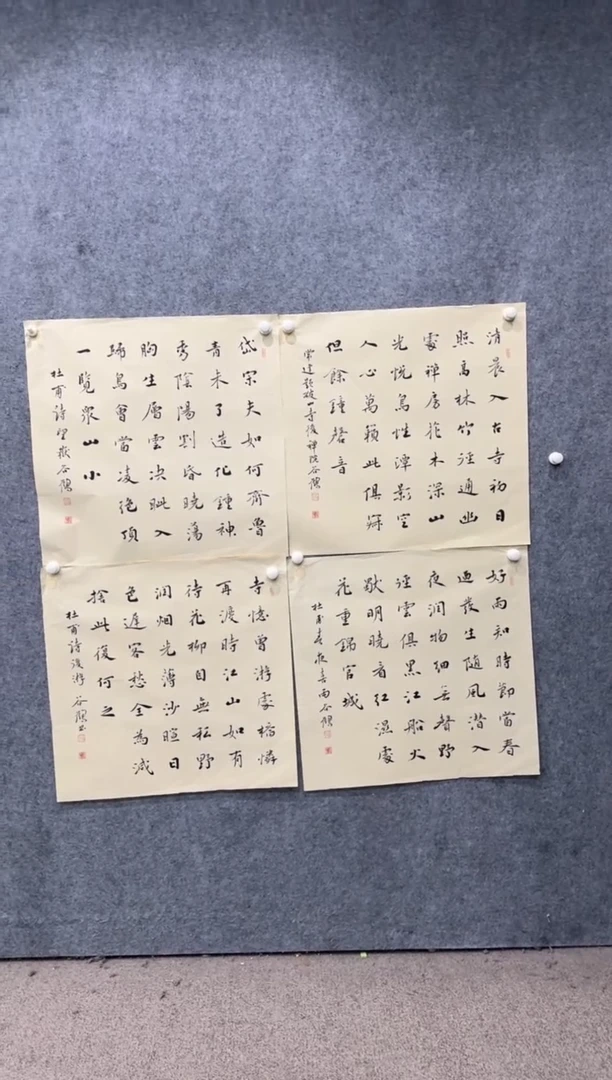 清晨入古寺初日
照高林竹徑通幽
處禪房花木深山
光悅鳥性潭影空
人心萬籟此俱寂
但餘鐘磬音
常建题破山寺後禅院谷
岱宗夫如何齊魯
青未了造化鍾神
秀陰陽割昏曉蕩
胸生層雲決眦入
歸鳥會當凌绝頂
一覽衆山小
杜甫詩望嶽谷
好雨知時節當春
迺發生随風潜入
夜润物细無聲野
徑雲俱黑江船火
獨明曉看紅濕處
花重錦官城
杜甫春夜喜雨谷
寺憶曾游處橋憐
再渡時江山如有
待花柳自無私野
润烟光薄沙暄日
色遲客愁全為減
捨此復何之
杜甫詩後游谷